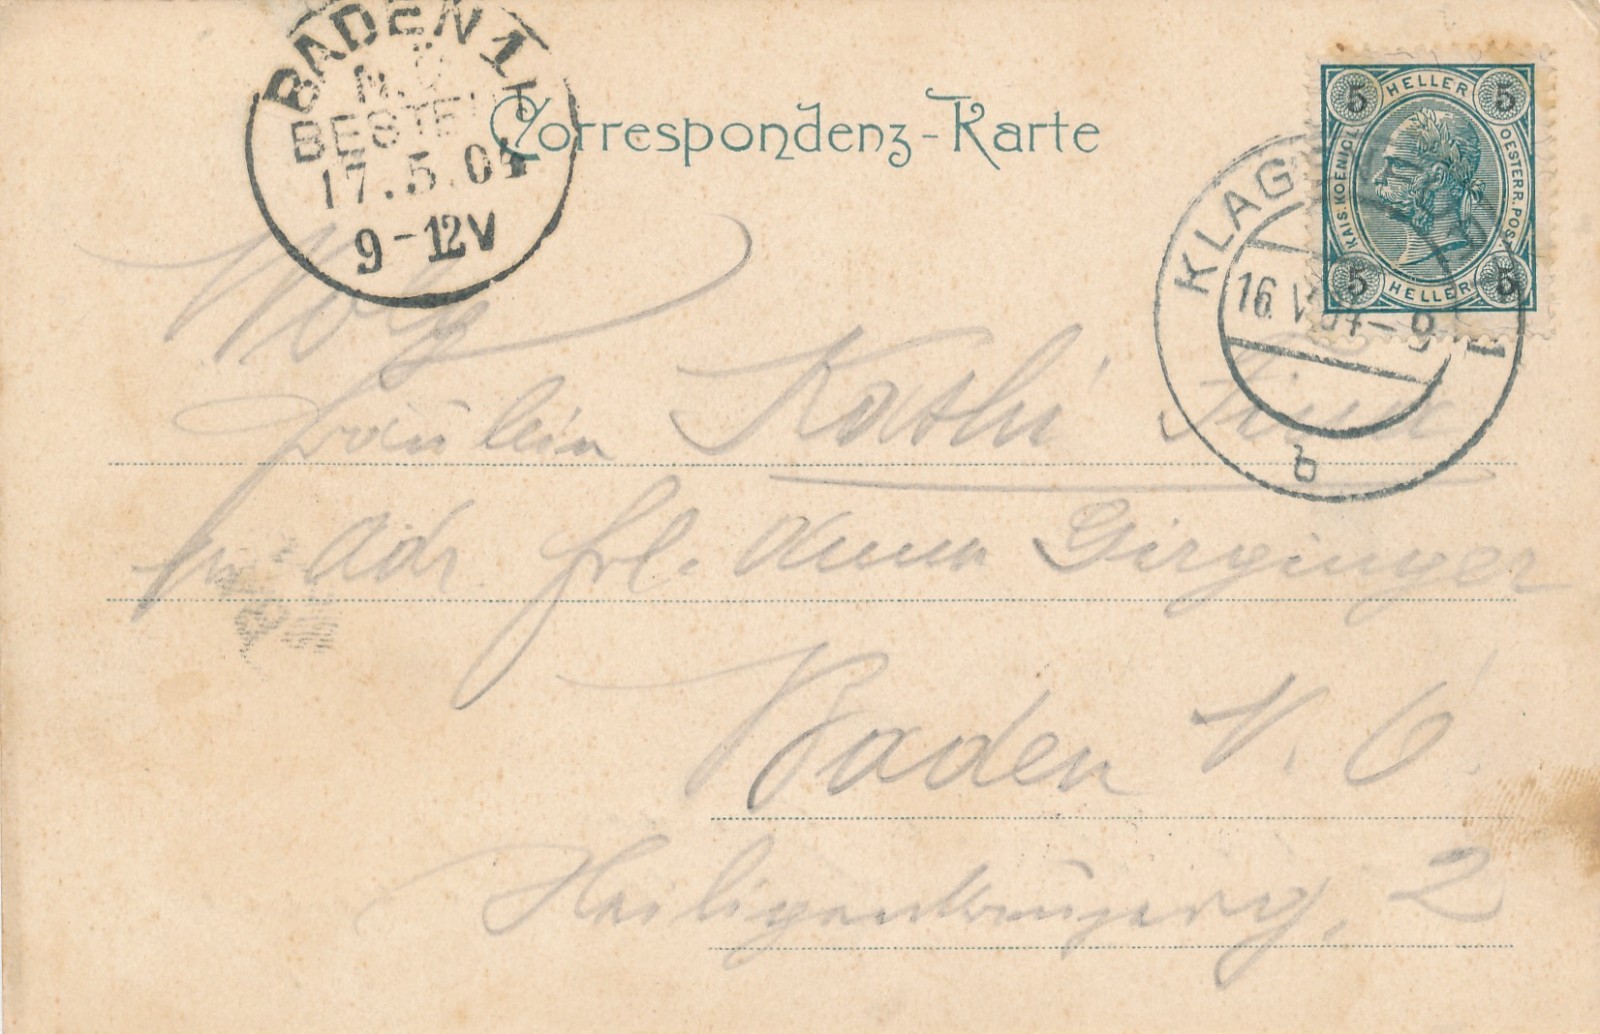 BADEN 1
N.Ö
BESTELLT
17.5.04
9-12V
Correspondenz-Karte
5 HELLER 5
KAIS. KOENIGL.
OESTERR. POST.
5 HELLER 5
KLAG
16. V 04-9
b
Wolg
Fräulein Kathi
pr. Adr Frl. Anna Girginger
Baden N. Ö.
Heiligenkreuzerg, 2